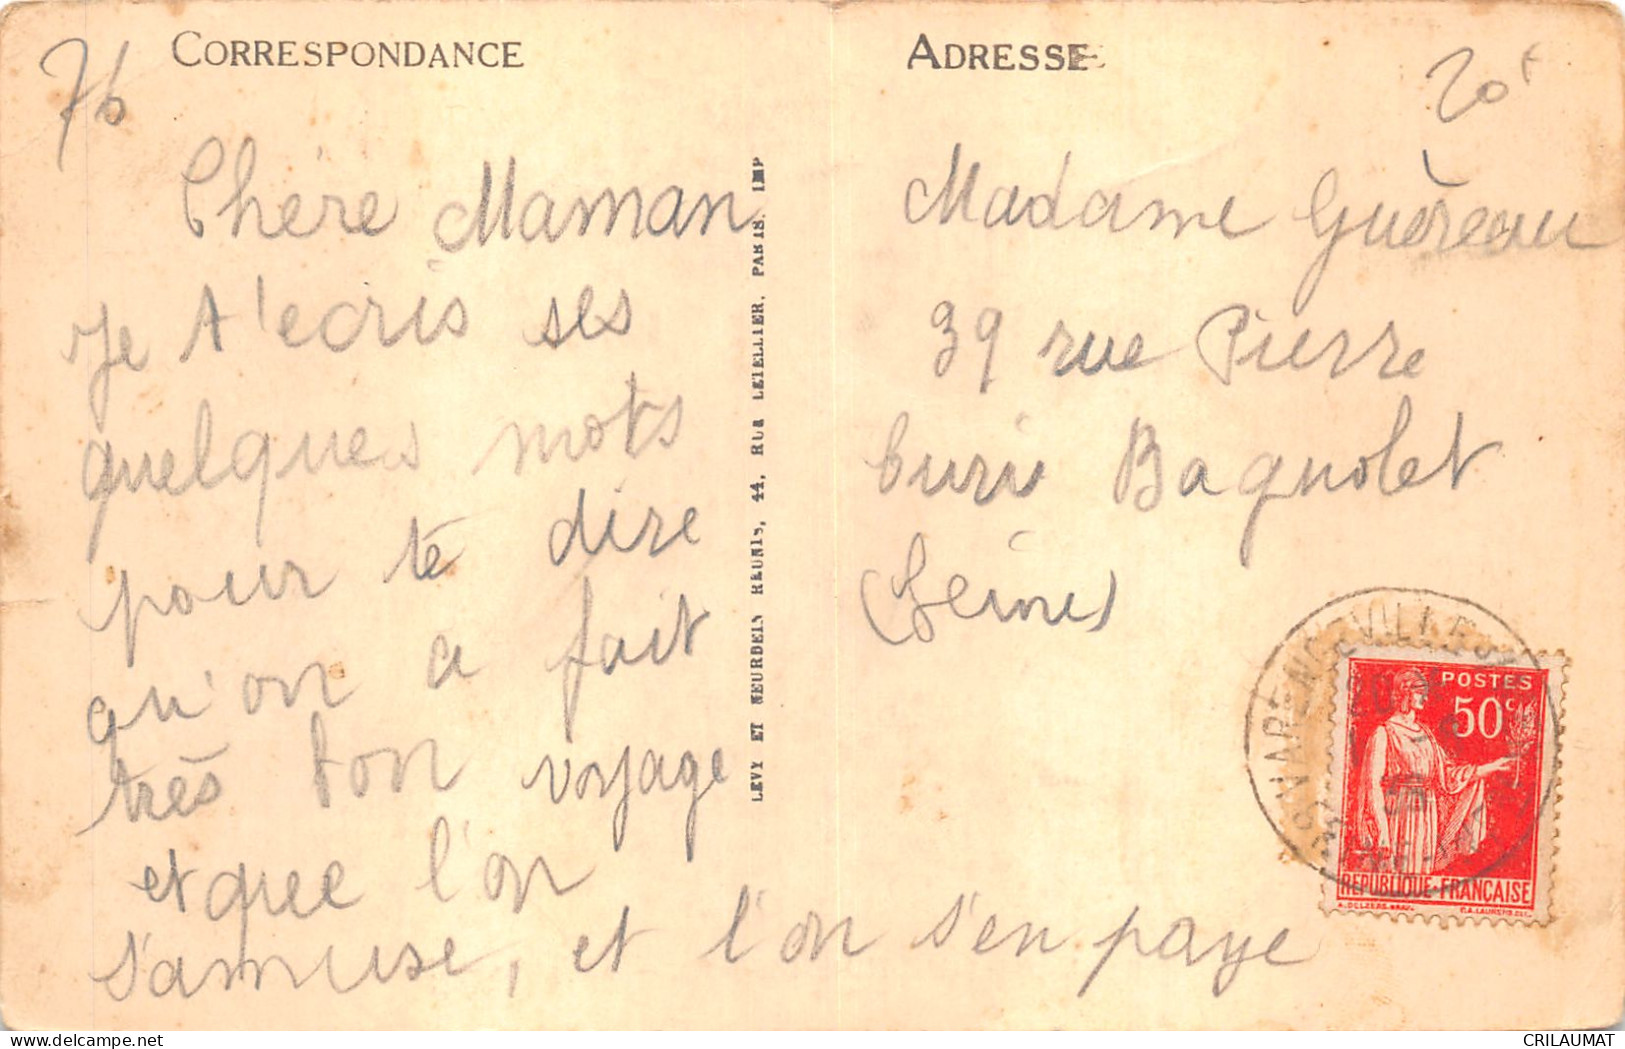 CORRESPONDANCE
76
Chère Maman
Je t'ecris ses
quelques mots
pour te dire
qu'on a fait
très bon voyage
et que l'on
s'amuse, et l'on s'en paye
LEVY ET NEURDEIN RÉUNIS, 44, RUE LETELLIER, PARIS. IMP
ADRESSE
20F
Madame Guèreau
39 rue Pierre
Curie Bagnolet
(Seine)
VARENGEVILLE
POSTES
50c
REPUBLIQUE·FRANÇAISE
CRILAUMAT